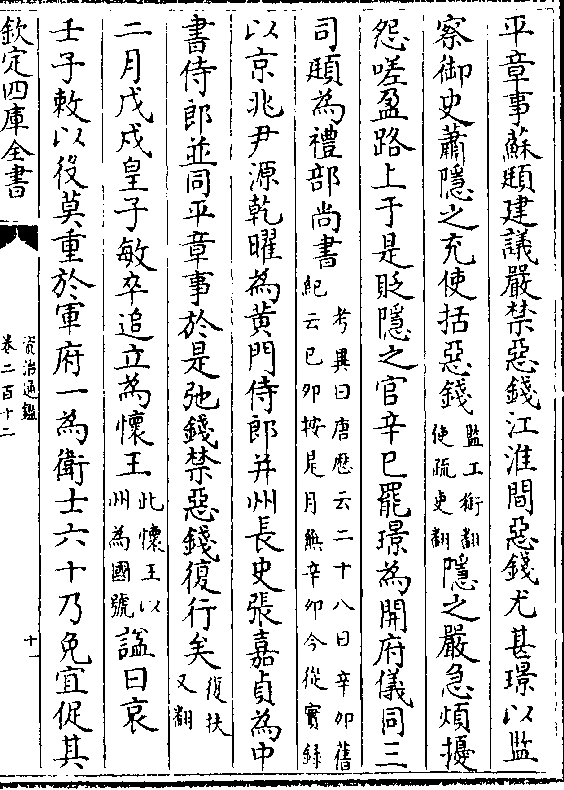 平章事蘇頲建議嚴禁惡錢江淮間惡錢尤甚璟以監
察御史蕭隱之充使括惡錢
監工銜翻
使疏吏翻
隱之嚴急煩擾
怨嗟盈路上于是貶隱之官辛巳罷璟為開府儀同三
司頲為禮部尚書
考異曰唐歴云二十八日辛卯舊
紀云已卯按是月無辛卯今從實録
以京兆尹源乾曜為黄門侍郎并州長史張嘉貞為中
書侍郎並同平章事於是弛錢禁惡錢復行矣
復扶
又翻
二月戊戍皇子敏卒追立為懷王
此懷王以
州為國號
諡曰哀
壬子敕以役莫重於軍府一為衛士六十乃免宜促其
欽定四庫全書
資治通鑑
卷二百十二
十一